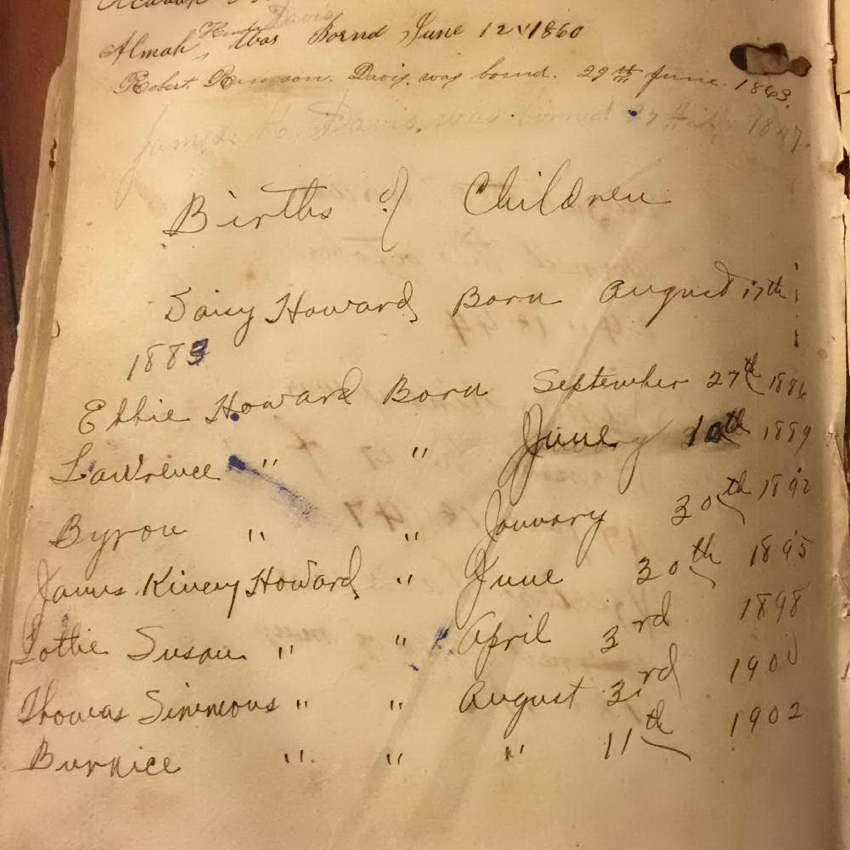 Davis
Almah was Bornd June 12 1860
Robert Davis was bornd. 29th June. 1863.
James H. Davis was borned 1847.
Births of Children
Daisy Howard Born August 17th
1883
Effie Howard Born September 27th 1886
Lawrence " " June 10th 1889
Byron " " January 30th 1892
James Kinery Howard " June 30th 1895
Lottie Susan " " April 3rd 1898
Thomas Simmons " " August 3rd 1900
Burnice " " " 11th 1902